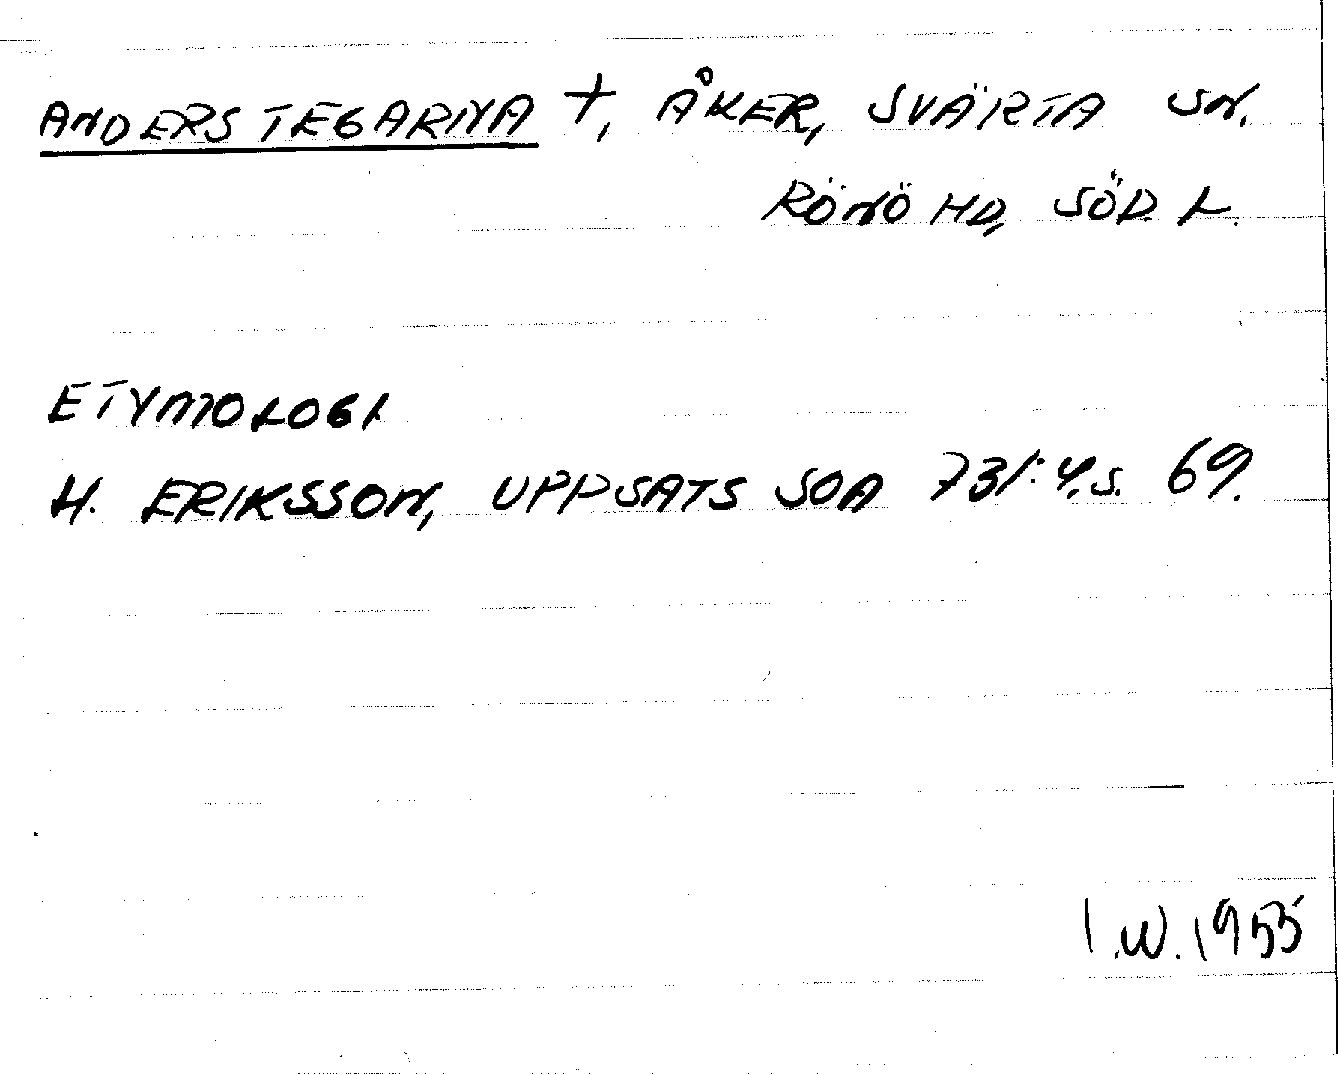 ANDERS TEGARNA †, ÅKER, SVÄRTA SN.
RÖNÖ HD, SÖD L.
ETYMOLOGI
H. ERIKSSON, UPPSATS SOA 731:4, S. 69.
I.W. 1955